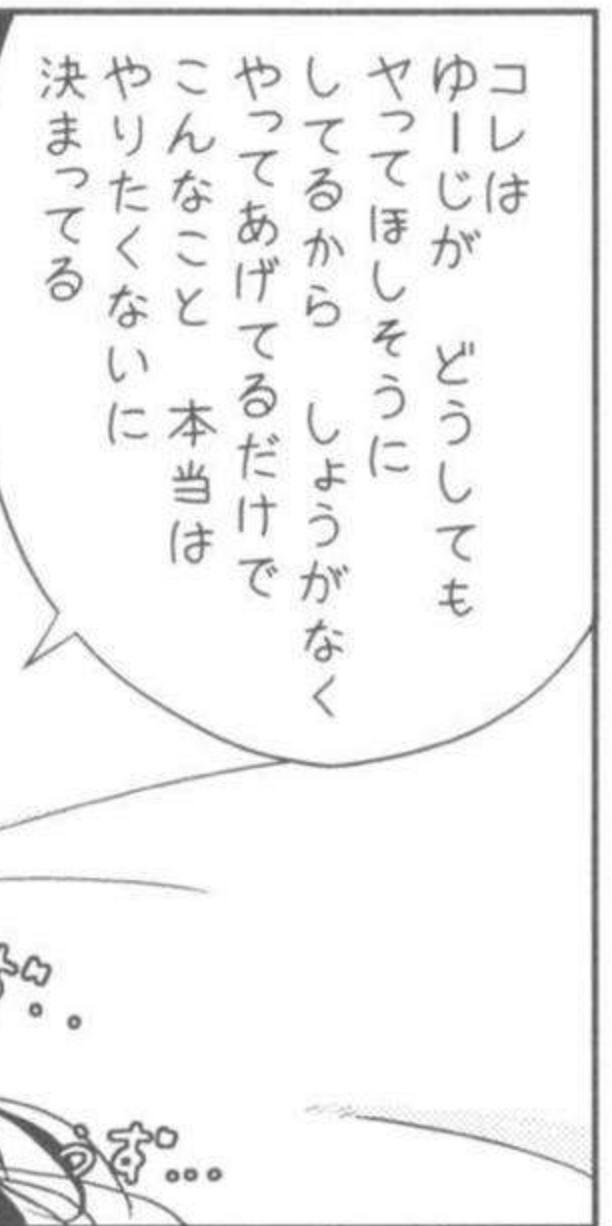 コレは
ゆーじが　どうしても
ヤってほしそうに
してるから　しょうがなく
やってあげてるだけで
こんなこと　本当は
やりたくないに
決まってる
うず…